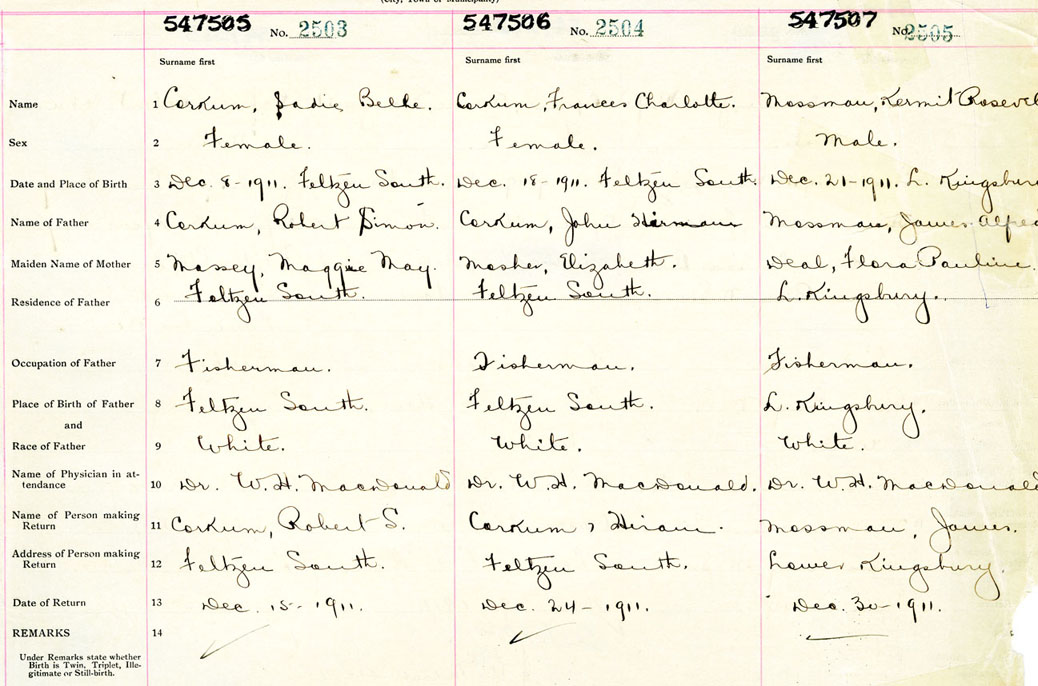 (City, Town or Municipality)
547505 No. 2503 547506 No. 2504 547507 No. 2505
Surname first Surname first Surname first
Name 1 Corkum, Sadie Belle. Corkum, Frances Charlotte. Mossman, Kermit Rosevel
Sex 2 Female. Female. Male.
Date and Place of Birth 3 Dec. 8-1911. Feltzen South. Dec. 18-1911. Feltzen South. Dec. 21-1911. L. Kingsbury
Name of Father 4 Corkum, Robert Simon. Corkum, John Mossman, James Alfred
Maiden Name of Mother 5 Massey, Maggie May. Mosher, Elizabeth. Deal, Flora Pauline.
Residence of Father 6 Feltzen South. Feltzen South. L. Kingsbury.
Occupation of Father 7 Fisherman. Fisherman. Fisherman.
Place of Birth of Father 8 Feltzen South. Feltzen South. L. Kingsbury.
and
Race of Father 9 White. White. White.
Name of Physician in at-
tendance 10 Dr. W.H. MacDonald Dr. W.H. MacDonald. Dr. W.H. MacDonald
Name of Person making
Return 11 Corkum, Robert S. Corkum, Hiram. Mossman, James.
Address of Person making
Return 12 Feltzen South. Feltzen South. Lower Kingsbury.
Date of Return 13 Dec. 15-1911. Dec. 24-1911. Dec. 30-1911.
REMARKS 14
Under Remarks state whether
Birth is Twin, Triplet, Ille-
gitimate or Still-birth.